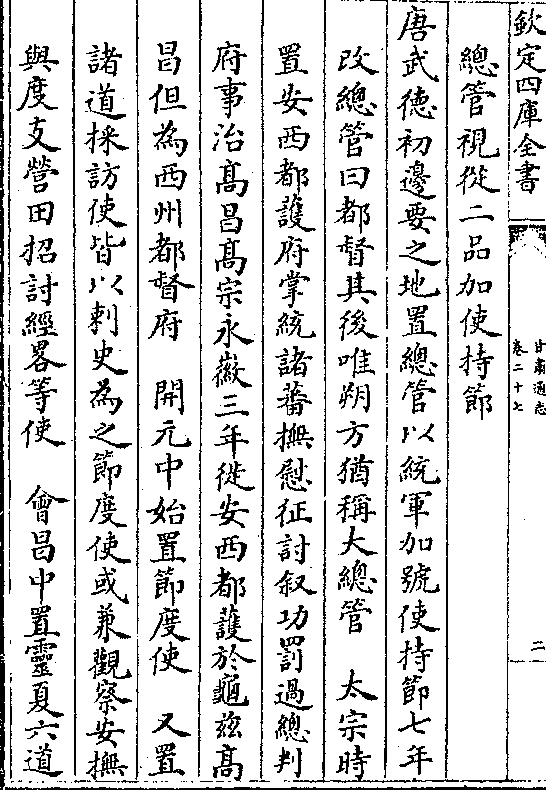 欽定四庫全書
甘肅通志
卷二十七
二
總管視從二品加使持節
唐武徳初邊要之地置總管以統軍加號使持節七年
改總管曰都督其後唯朔方猶稱大總管　太宗時
置安西都護府掌統諸蕃撫慰征討叙功罰過總判
府事治髙昌髙宗永徽三年徙安西都䕶於龜兹髙
昌但為西州都督府　開元中始置節度使　又置
諸道採訪使皆以刺史為之節度使或兼觀察安撫
與度支營田招討經畧等使　會昌中置靈夏六道